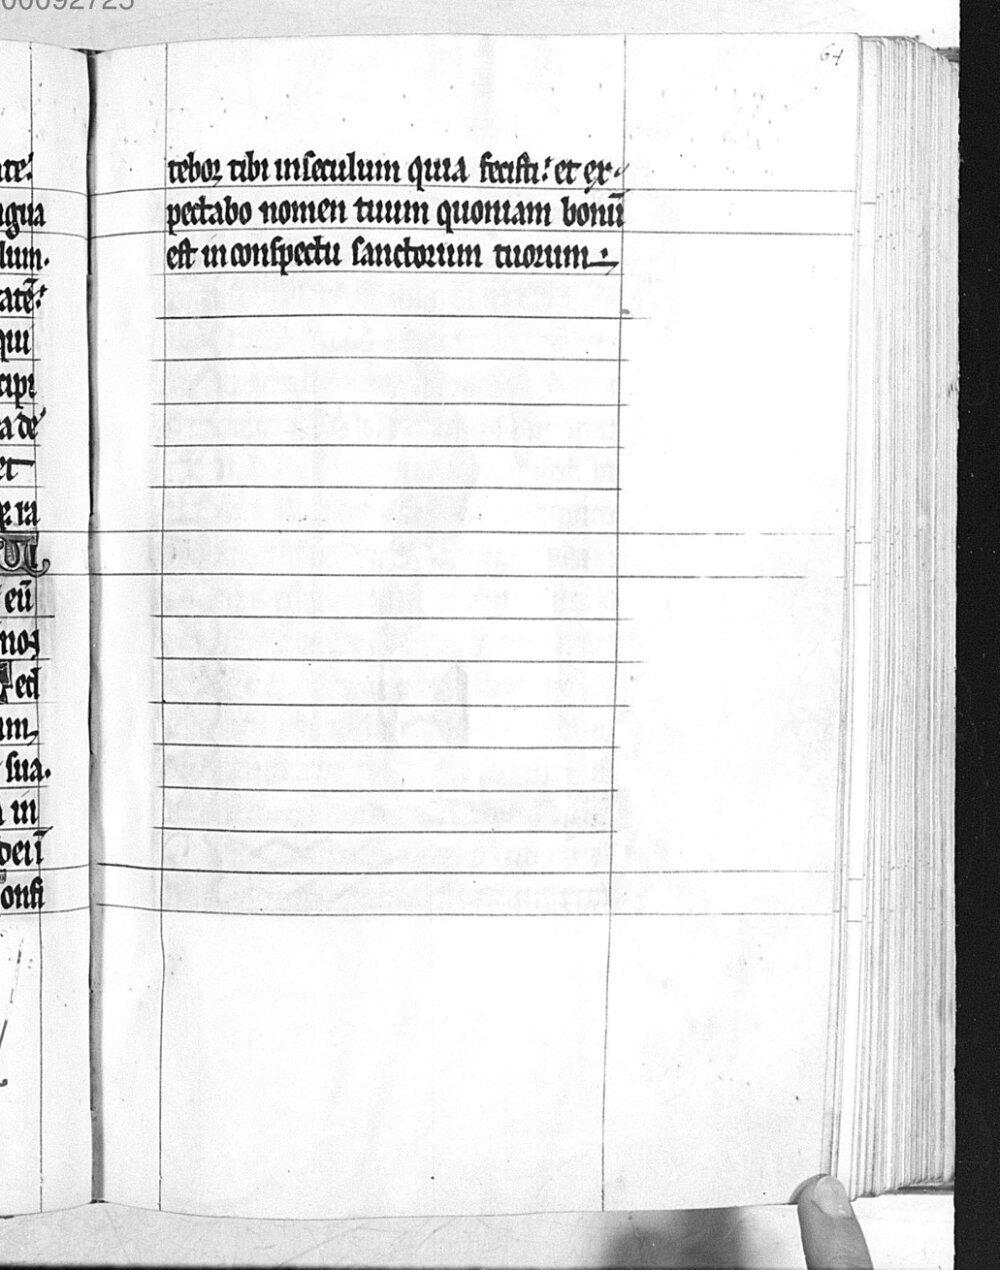 00092725
64
tebor tibi in seculum quia fecisti: et ex-
pectabo nomen tuum quoniam bonū
est in conspectu sanctorum tuorum.
ate:
gua
lum.
atē:
qui
cipi
a de
et
ra
eū
nos
ed
um,
sua.
in
deū
onfi